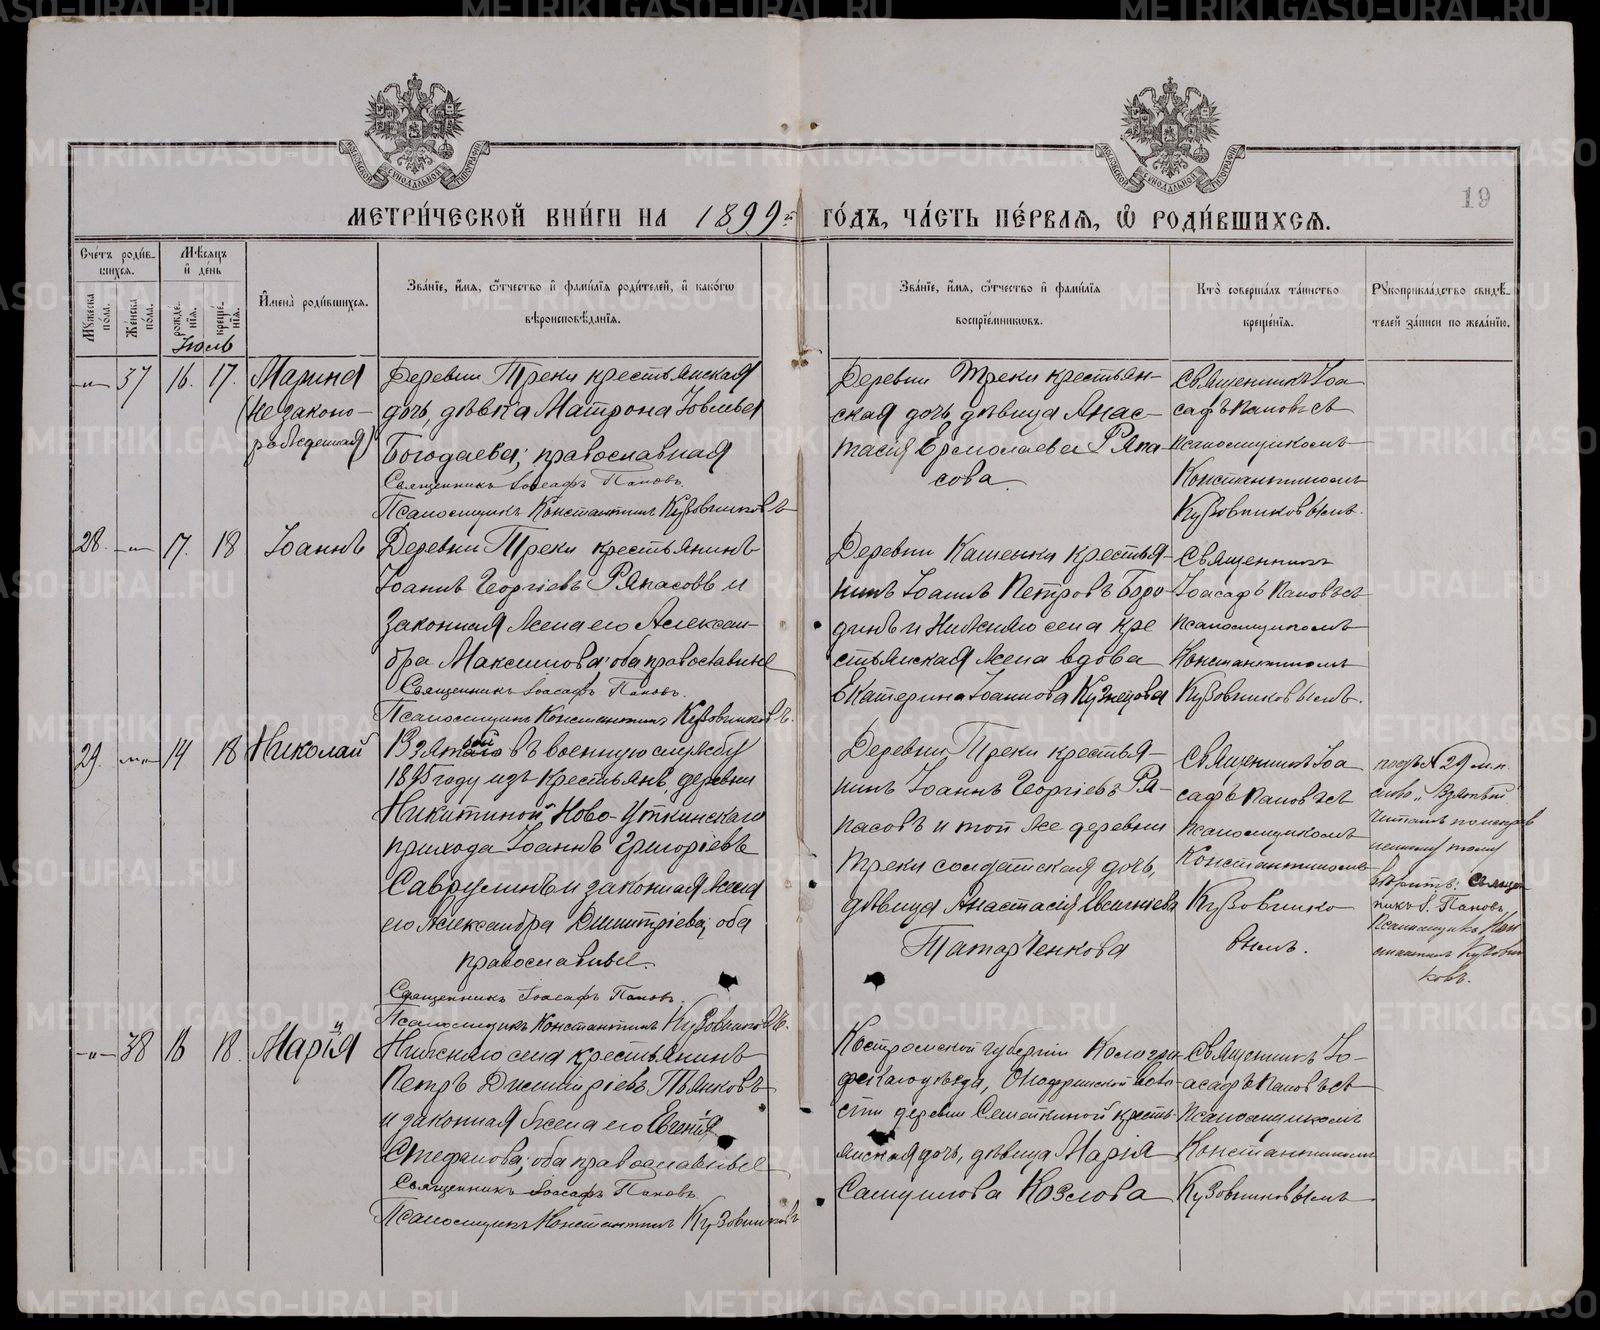 МЕТРИ́ЧЕСКОЙ КНИ́ГИ НА 1899й ГО́ДЪ, ЧА́СТЬ ПЕ́РВАѦ, Ѡ҆ РОДИ́ВШИХСѦ.
19
Сче́тъ роди́в-
шихся.
Мѣ́сяцъ
и҆ де́нь
Мꙋ́жеска
по́ла.
Же́нска
по́ла.
рожде́-
нїя.
креще́-
нїя.
И҆мена̀ роди́вшихся.
Зва́нїе, и҆́мя, ѻ҆́тчество и҆ фами́лїя роди́телей, и҆ како́гѡ
вѣроисповѣ́данїя.
Зва́нїе, и҆́мя, ѻ҆́тчество и҆ фами́лїя
воспрїе́мниковъ.
Кто̀ соверша́лъ та́инство
креще́нїя.
Рꙋкоприкла́дство свидѣ́-
телей за́писи по жела́нїю.
Іюль
—„— 37 16. 17. Марина
(незаконо-
рожденная)
Деревни Треки крестьянская
дочь, дѣвка Матрона Іовлева
Богодаева; православная
Священникъ Іоасафъ Поповъ.
Псаломщикъ Константинъ Кузовниковъ
Деревни Треки крестьян-
ская дочь дѣвица Анас-
тасія Ермолаева Ряпа
сова.
Священникъ Іоа
сафъ Поповъ съ
псаломщикомъ
Константиномъ
Кузовниковымъ.
28. —„— 17. 18 Іоаннъ
Деревни Треки крестьянинъ
Іоаннъ Георгіевъ Ряпасовъ и
законная жена его Алексан-
дра Максимова; оба православные
Священникъ Іоасафъ Поповъ.
Псаломщикъ Константинъ Кузовниковъ.
Деревни Каменки крестья-
нинъ Іоаннъ Петровъ Боро
динъ и Нижняго села кре
стьянская жена вдова
Екатерина Іоаннова Кузнецова
Священникъ
Іоасафъ Поповъ съ
псаломщикомъ
Константиномъ
Кузовниковымъ.
29. —„— 14 18 Николай
Взятый въ военную службу
1895 году изъ крестьянъ, деревни
Никитиной, Ново-Уткинскаго
прихода Іоаннъ Григоріевъ
Саврулинъ и законная жена
его Александра Димитріева; оба
православные.
Священникъ Іоасафъ Поповъ.
Псаломщикъ Константинъ Кузовниковъ.
Деревни Треки крестья-
нинъ Іоаннъ Георгіевъ Ря-
пасовъ и той же деревни
Треки солдатская дочь,
дѣвица Анастасія Евгеніева
Татарченкова
Священникъ Іоа
сафъ Поповъ съ
псаломщикомъ
Константиномъ
Кузовнико
вымъ.
подъ № 29 м.п.
слово „Взятый
читать по исправ
ленному тому
вѣрить: Священ
никъ І. Поповъ
Псаломщикъ Кон
стантинъ Кузовни
ковъ.
—„— 38 16 18. Марія
Нижняго села крестьянинъ
Петръ Димитріевъ Пьянковъ
и законная жена его Евгенія
Стефанова; оба православные
Священникъ Іоасафъ Поповъ
Псаломщикъ Константинъ Кузовниковъ
Костромской губерніи Кологри
фскаго уѣзда, воло-
сти деревни крестья
янская дочь, дѣвица Марія
Самуилова Козлова
Священникъ Іо-
асафъ Поповъ съ
псаломщикомъ
Константиномъ
Кузовниковымъ
METRIKI.GASO-URAL.RU